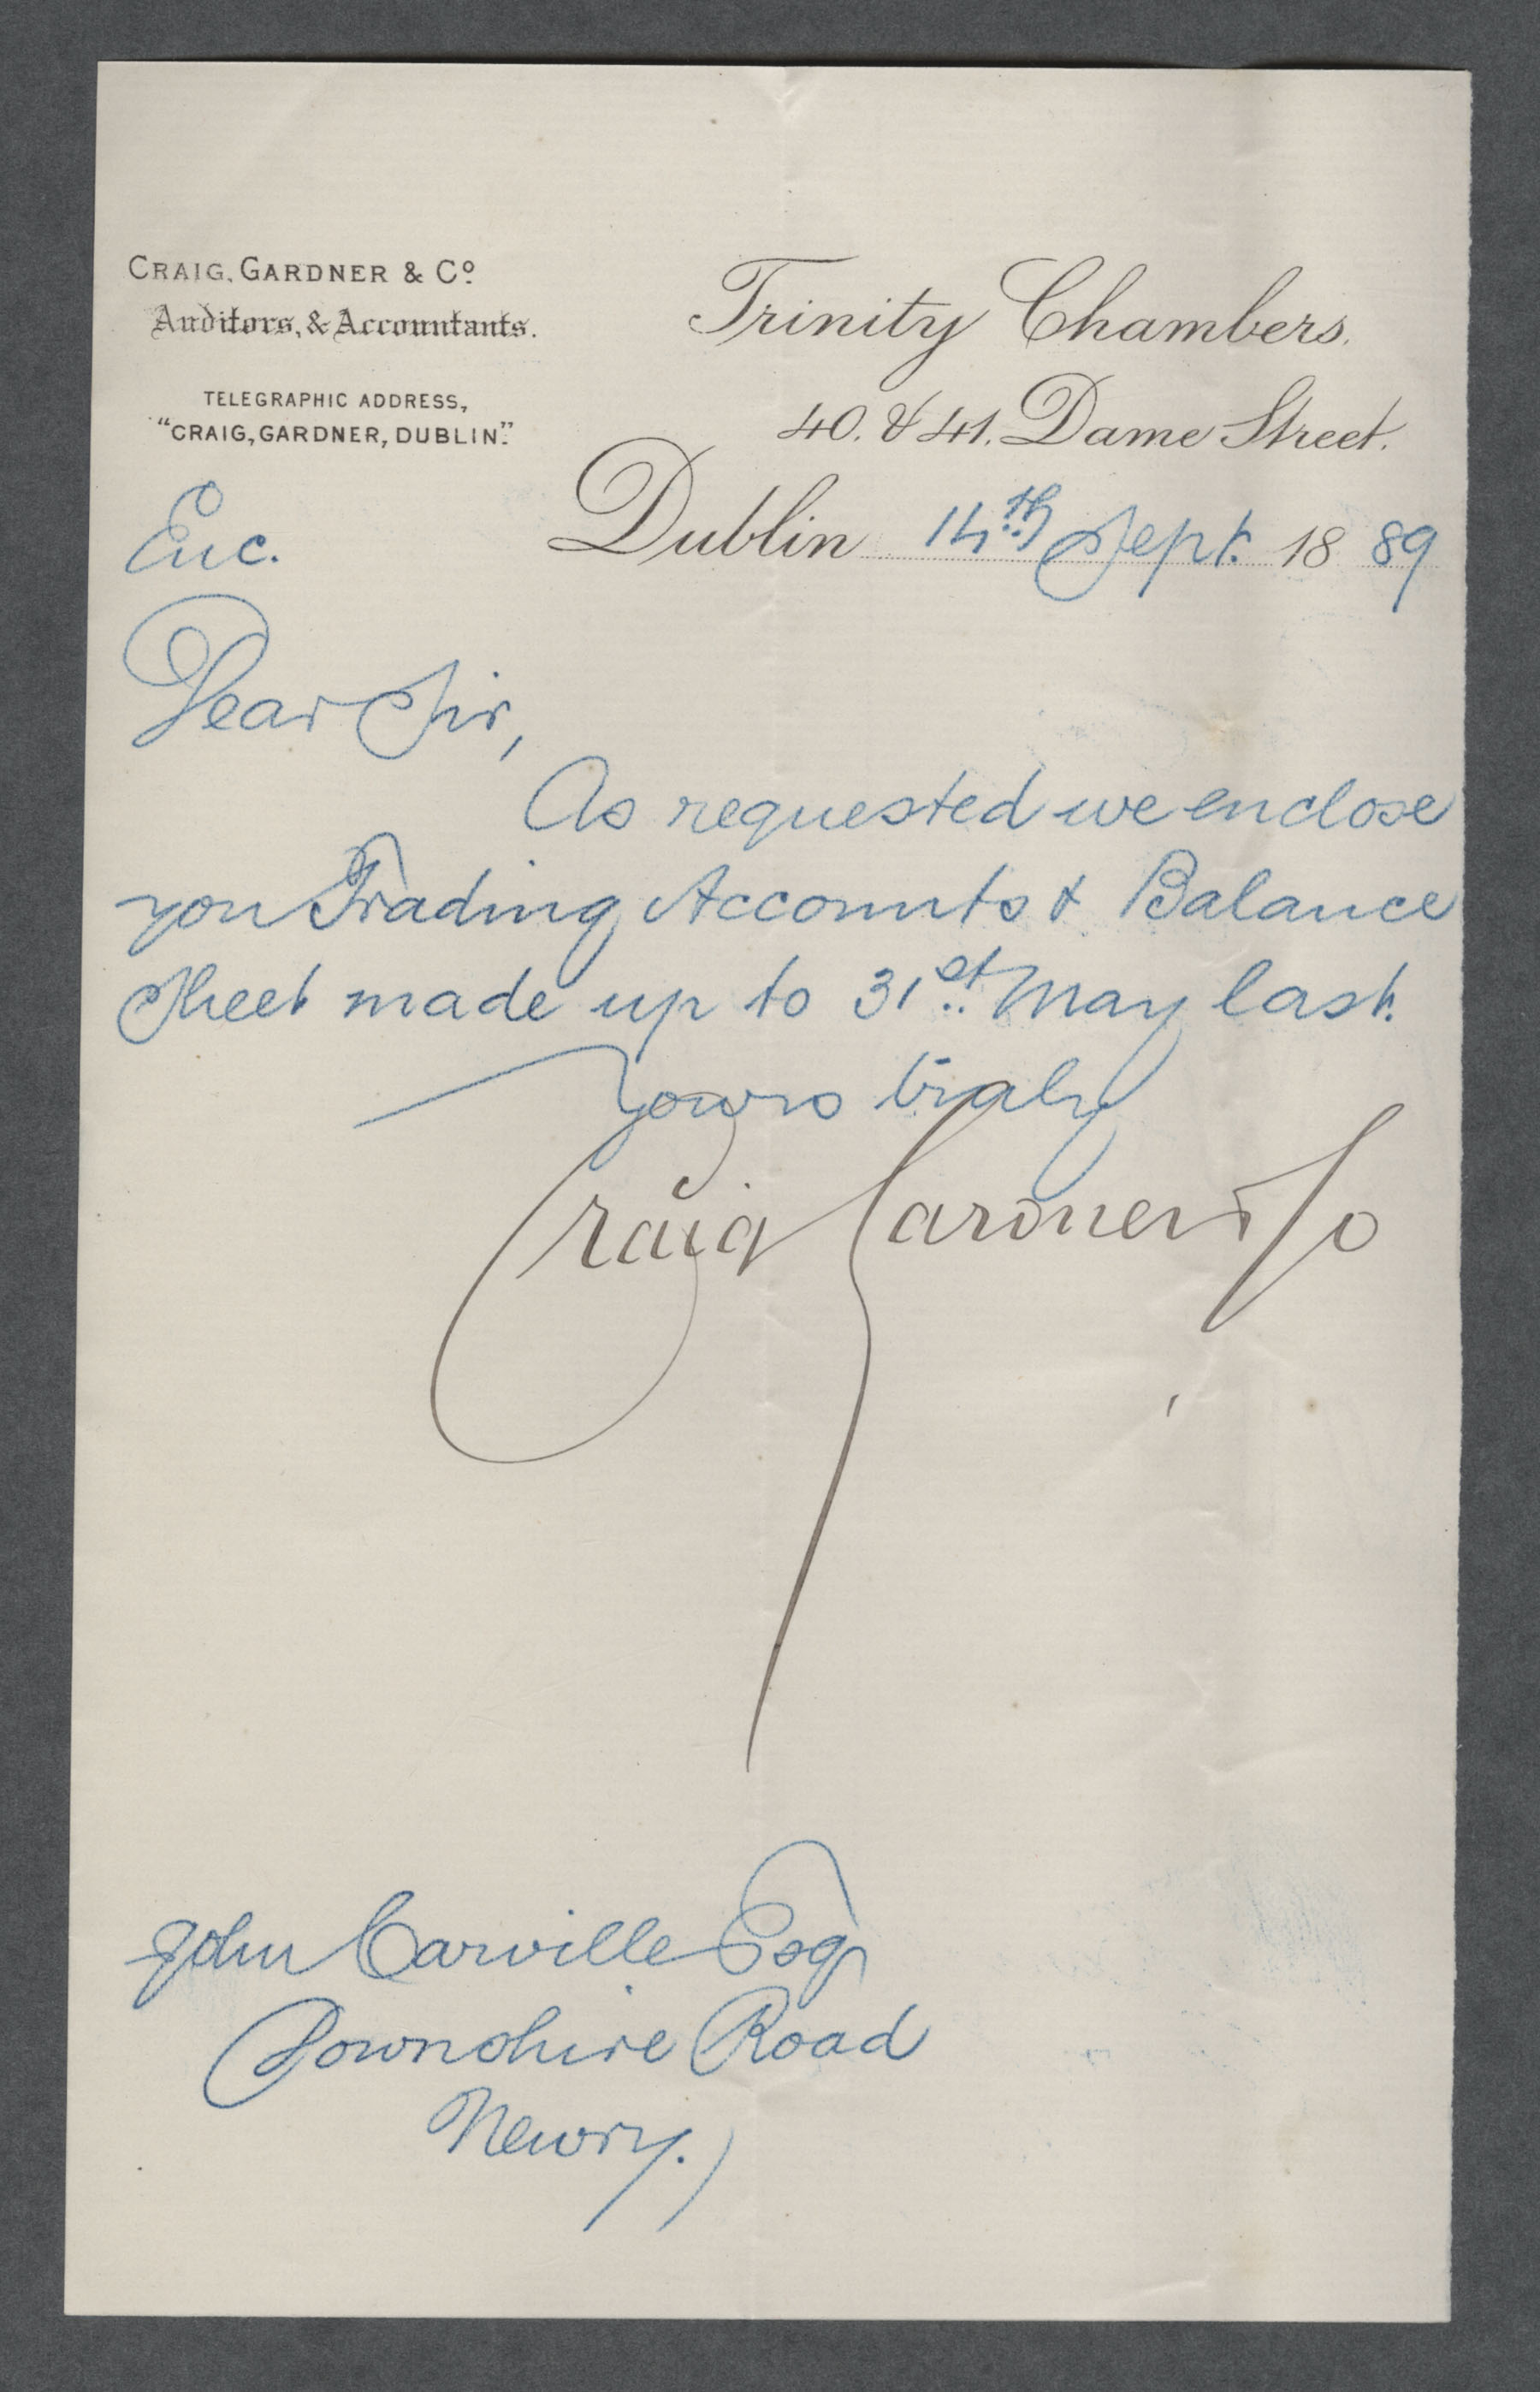 CRAIG, GARDNER & Cº
Auditors, & Accountants.
TELEGRAPHIC ADDRESS,
"CRAIG, GARDNER, DUBLIN".
Trinity Chambers.
40. & 41. Dame Street.
Dublin 14th Sept. 1889
Enc.
Dear Sir,
As requested we enclose
you Trading Accounts & Balance
Sheet made up to 31st May last.
Yours truly
Craig Gardner & Co
John Carville Esq
Downshire Road
Newry.